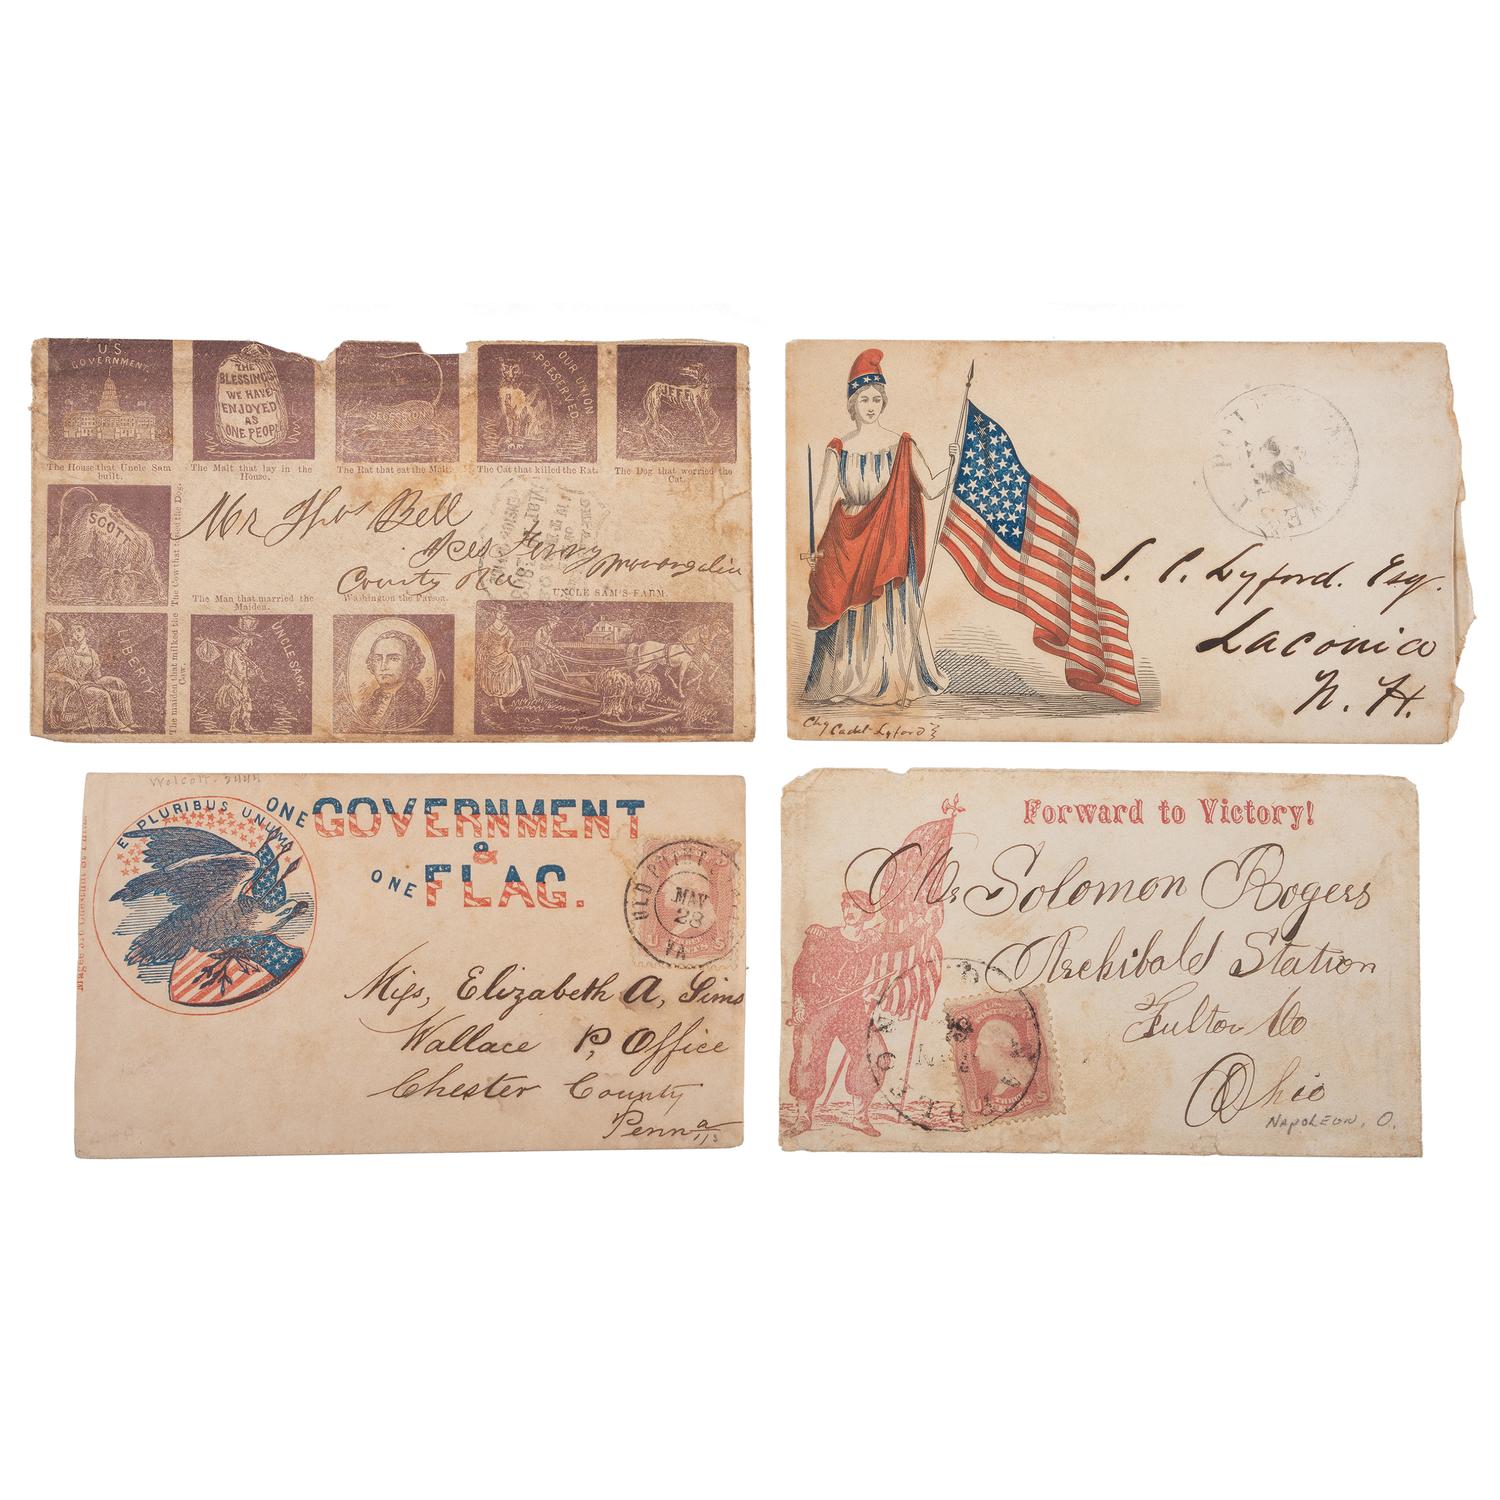 U.S.
GOVERNMENT.
THE
BLESSINGS
WE HAVE
ENJOYED
AS
ONE PEOPLE
SECESSION
OUR UNION
PRESERVED
JEFF
The House that Uncle Sam
built.
The Malt that lay in the
House.
The Rat that eat the Malt.
The Cat that killed the Rat.
The Dog that worried the
Cat.
SCOTT
The Cow that tossed the Dog.
Mr Thos Bell
Ferry Monongalia
County
The Man that married the
Maiden.
Washington the Parson.
UNCLE SAM'S FARM.
LIBERTY
The maiden that milked the
Cow.
UNCLE SAM.
S. C. Lyford. Esq.
Laconica
N. H.
Chg Cadet Lyford
Wolcott. 2444
E PLURIBUS UNUM
ONE GOVERNMENT
&
ONE FLAG.
OLD POINT
MAY
28
VA
Miss, Elizabeth A, Sims
Wallace P, Office
Chester County
Penna
Forward to Victory!
Mr Solomon Rogers
Archibald Station
Fulton Co
Ohio
NAPOLEON, O.